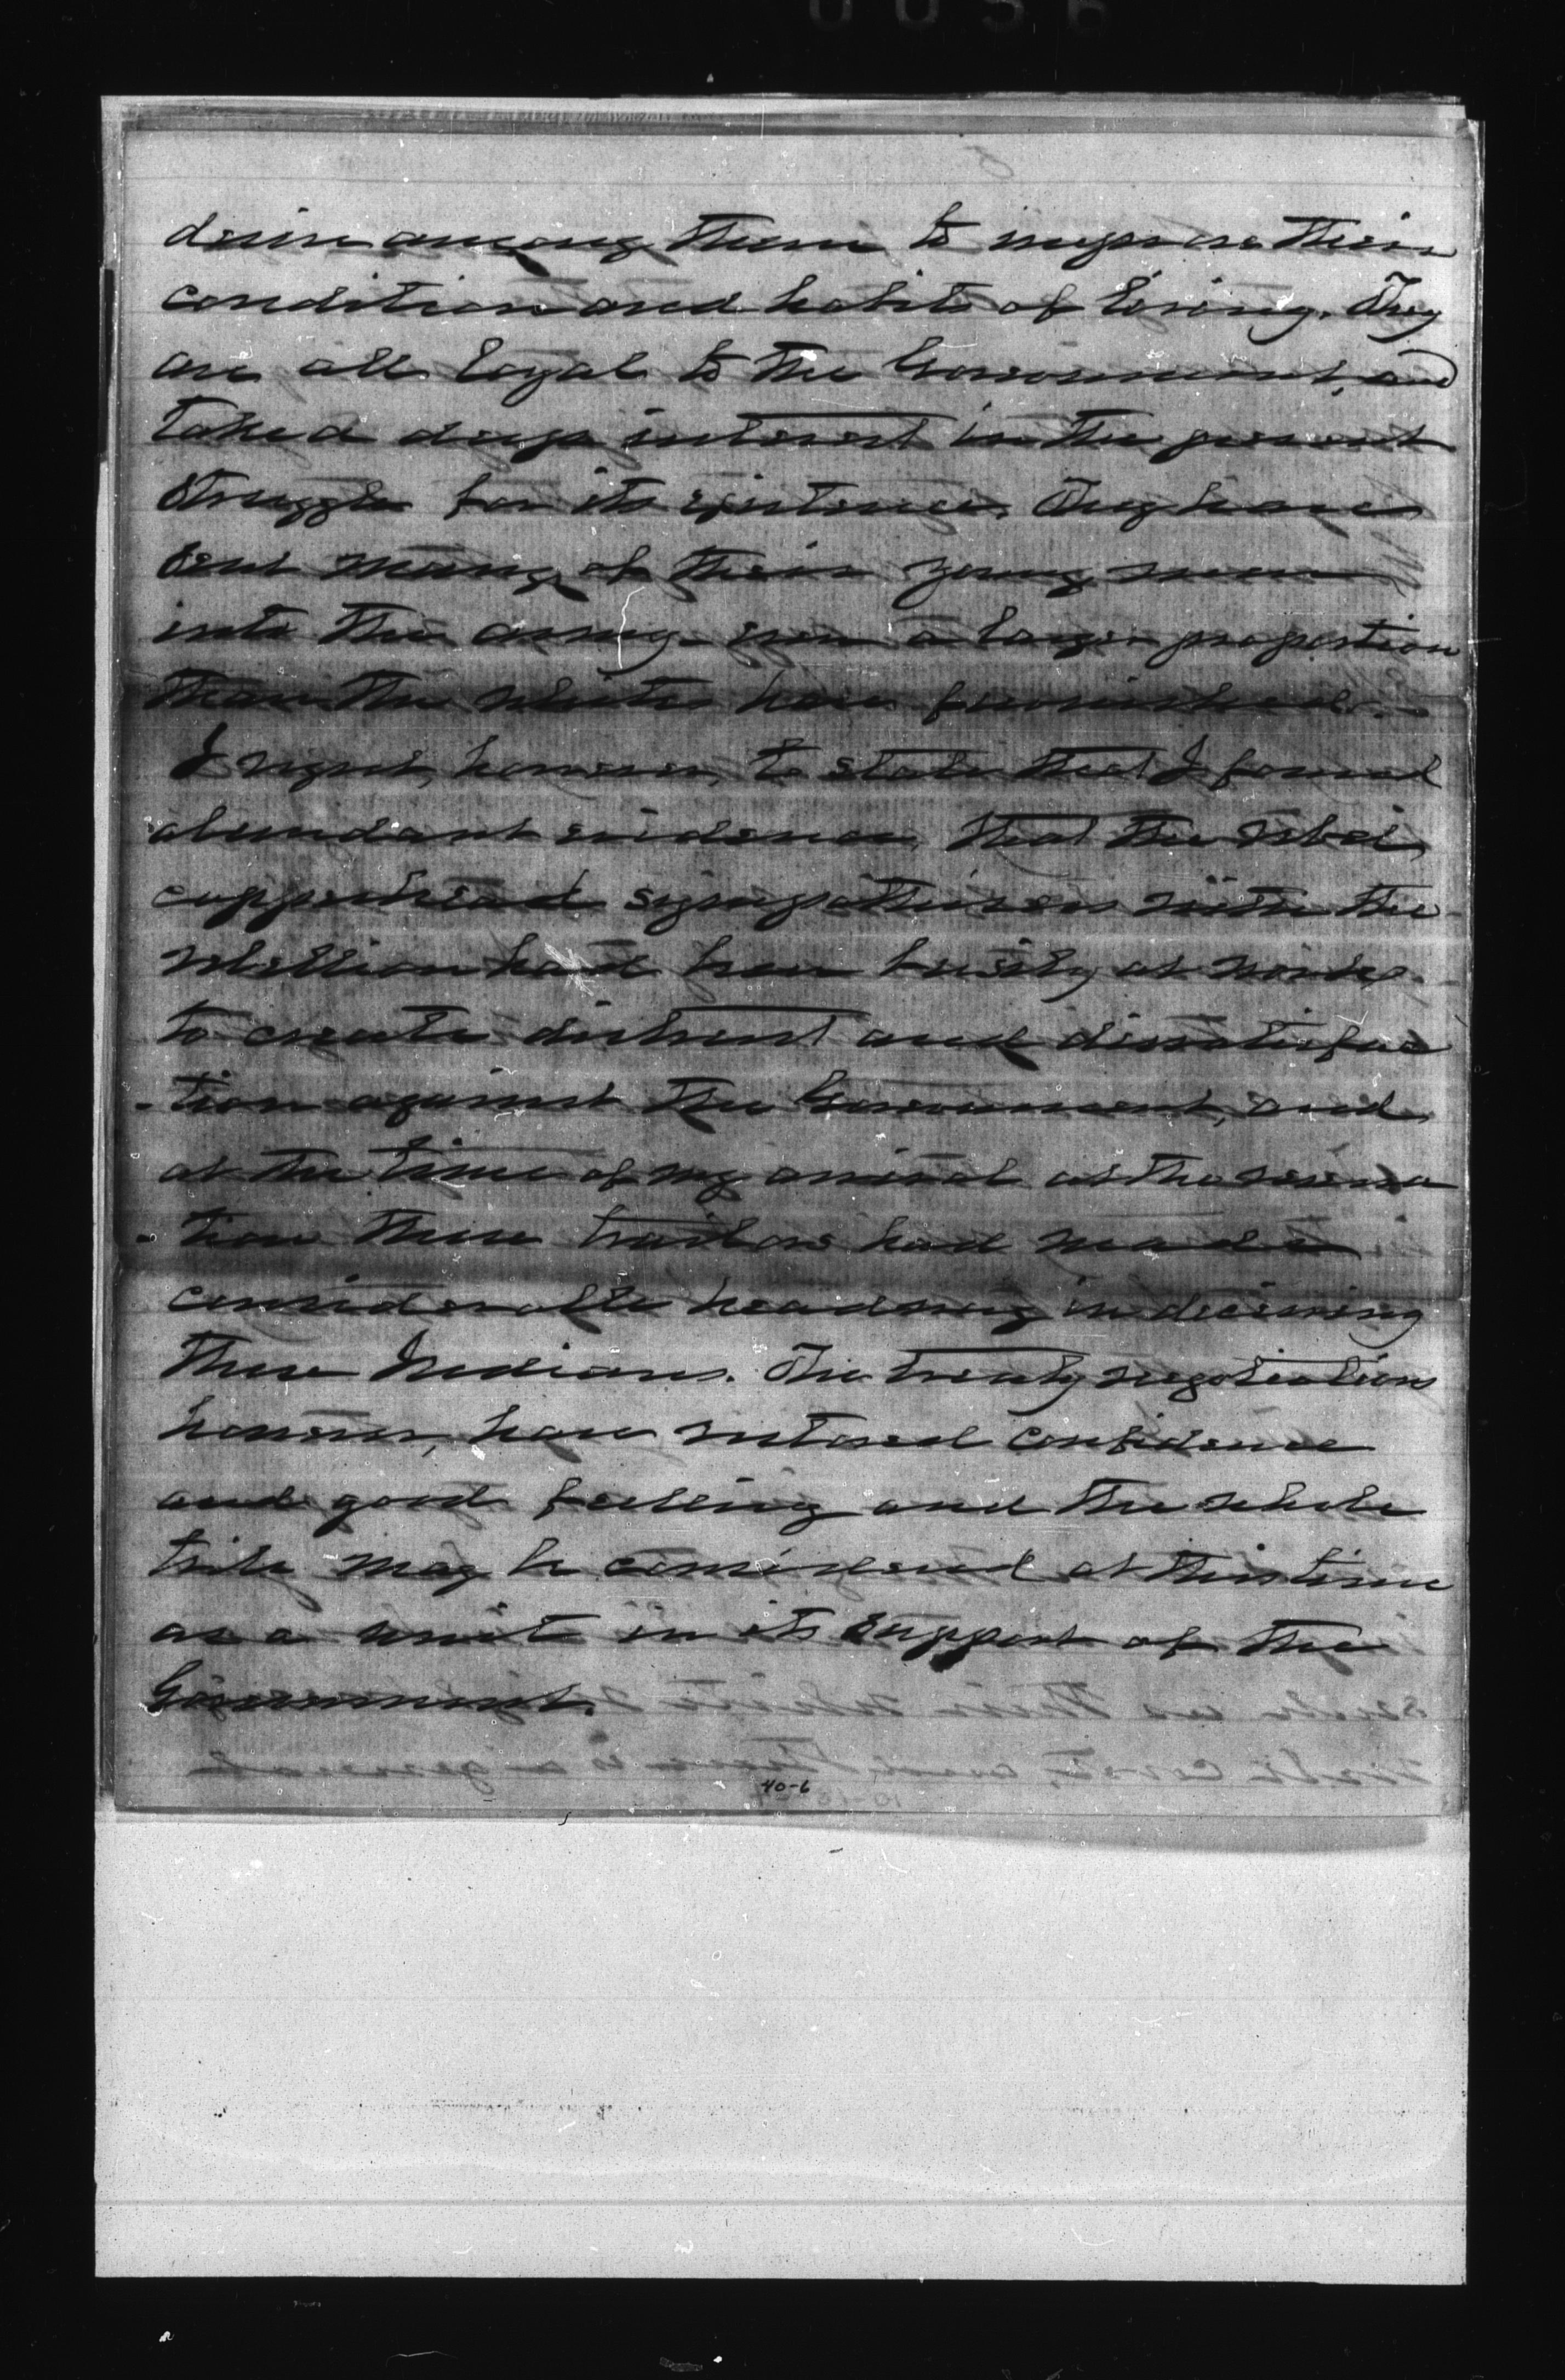 desire among them to improve their
condition and habits of living. They
are all loyal to the Government, and
take a deep interest in the present
struggle for its existence. They have
sent many of their young men
into the army - even a larger proportion
than the whites have furnished. -
I regret, however, to state that I found
abundant evidence, that the rebel
copperhead sympathisers with the
rebellion had been busily at work,
to create distrust and dissatisfac
-tion against the Government, and,
at the time of my arrival at the reserva
-tion these traitors had made
considerable headway in deceiving
these Indians. The treaty negotiations
however, have restored confidence
and good feeling and the whole
tribe may be considered at this time
as a unit in its support of the
Government.
40-6